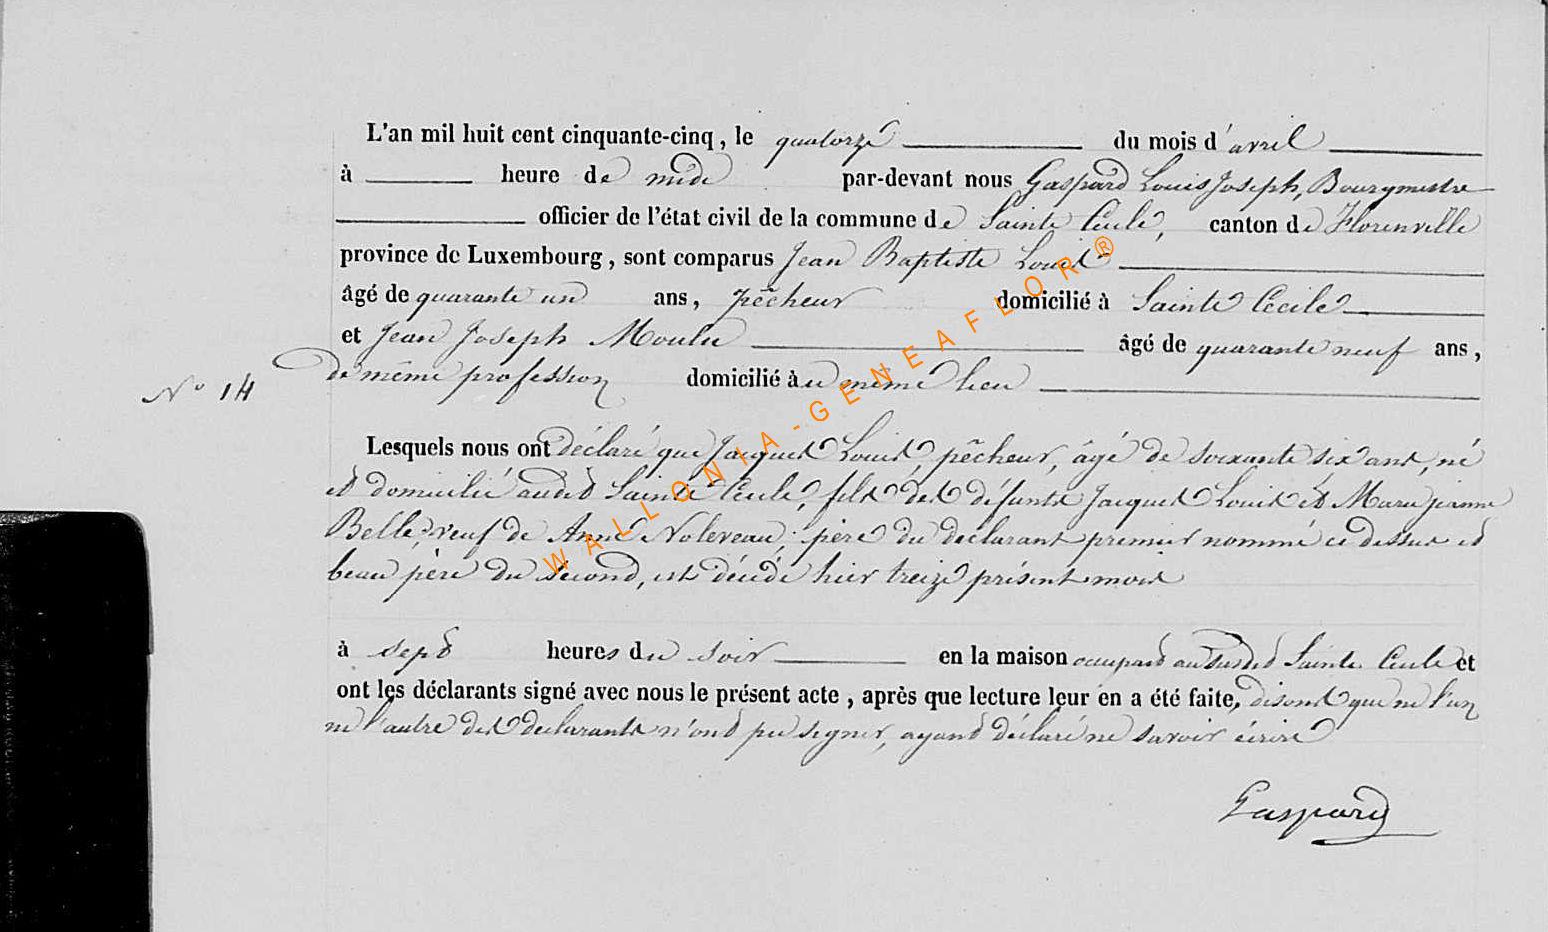 L'an mil huit cent cinquante-cinq, le quatorze du mois d'avril
à heure de midi par-devant nous Gaspard Louis Joseph, Bourgmestre
officier de l'état civil de la commune de Sainte Cécile, canton de Florenville
province de Luxembourg, sont comparus Jean Baptiste Louis
âgé de quarante un ans, pêcheur domicilié à Sainte Cécile
et Jean Joseph Moulu âgé de quarante neuf ans,
de même profession domicilié au même lieu
N° 14
Lesquels nous ont déclaré que Jacques Louis, pêcheur, âgé de soixante six ans, né
et domicilié audit Sainte Cécile, fils des défunts Jacques Louis et Marie jeanne
Belle, veuf de Anne Noleveau, père du déclarant premier nommé ci dessus et
beau père du second, est décédé hier treize présent mois
à sept heures du soir en la maison audit Sainte Cécile et
ont les déclarants signé avec nous le présent acte, après que lecture leur en a été faite, disons que ni l'un
ni l'autre des déclarants n'ont pu signer, ayant déclaré ne savoir écrire
Gaspard
WALLONIA-GENEAFLOR®